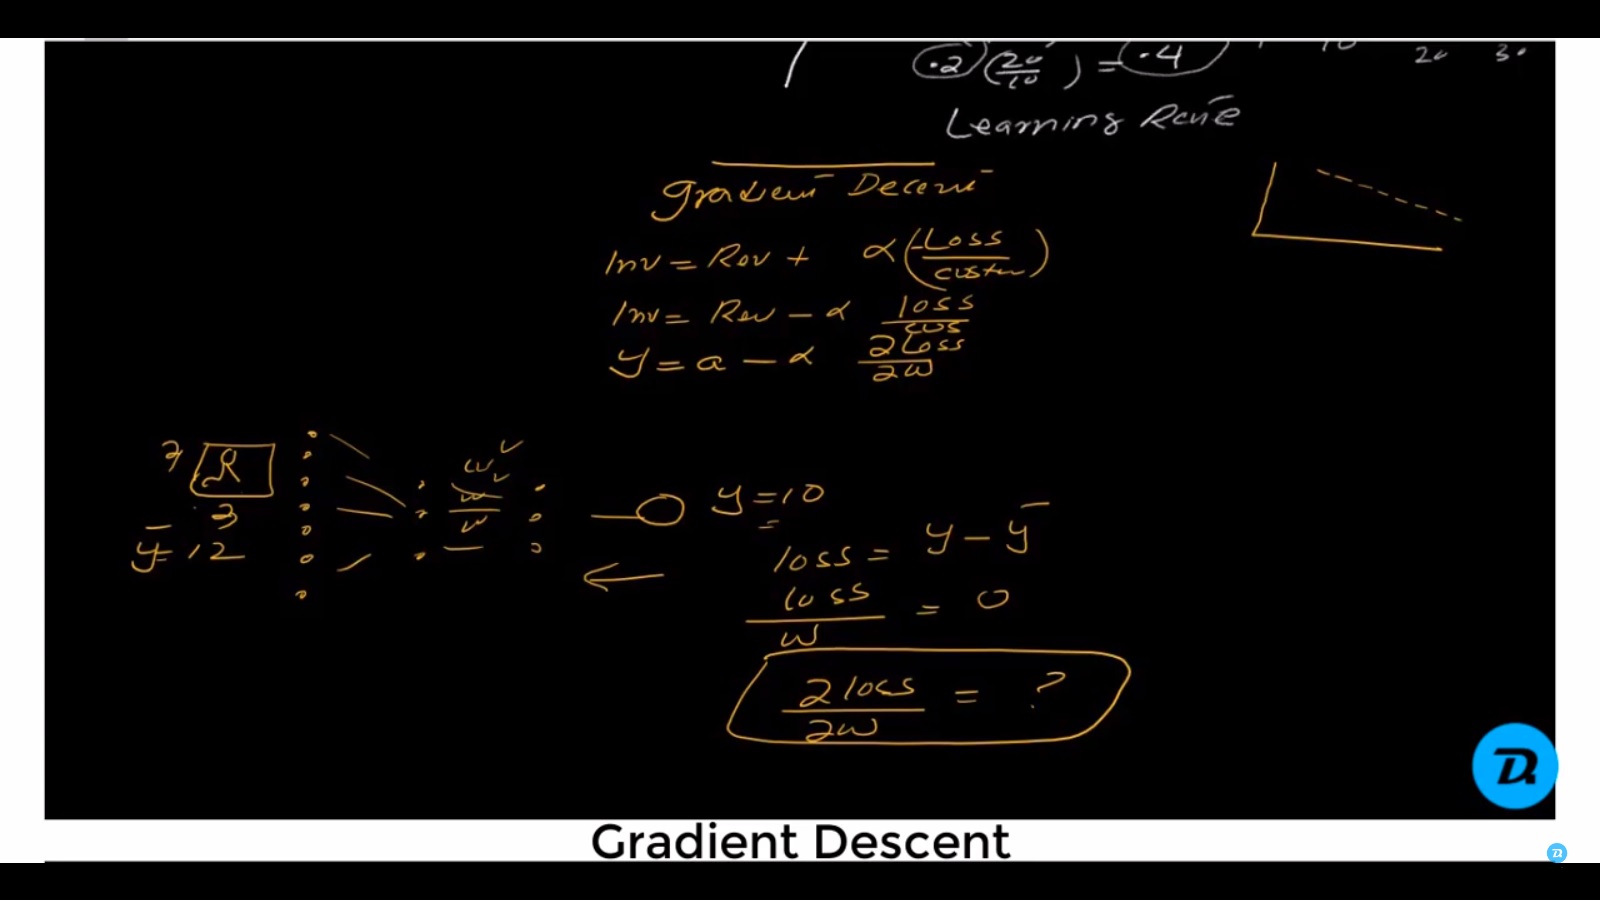 .2 (20/10) = .4
20 30
Learning Rate
Gradient Decent
Inv = Rev + α (-Loss/custm)
Inv = Rev - α loss/cus
y = a - α 2Loss/2w
w
w
w
3
y = 10
y = 12
loss = y - y
loss/w = 0
2loss/2w = ?
Gradient Descent